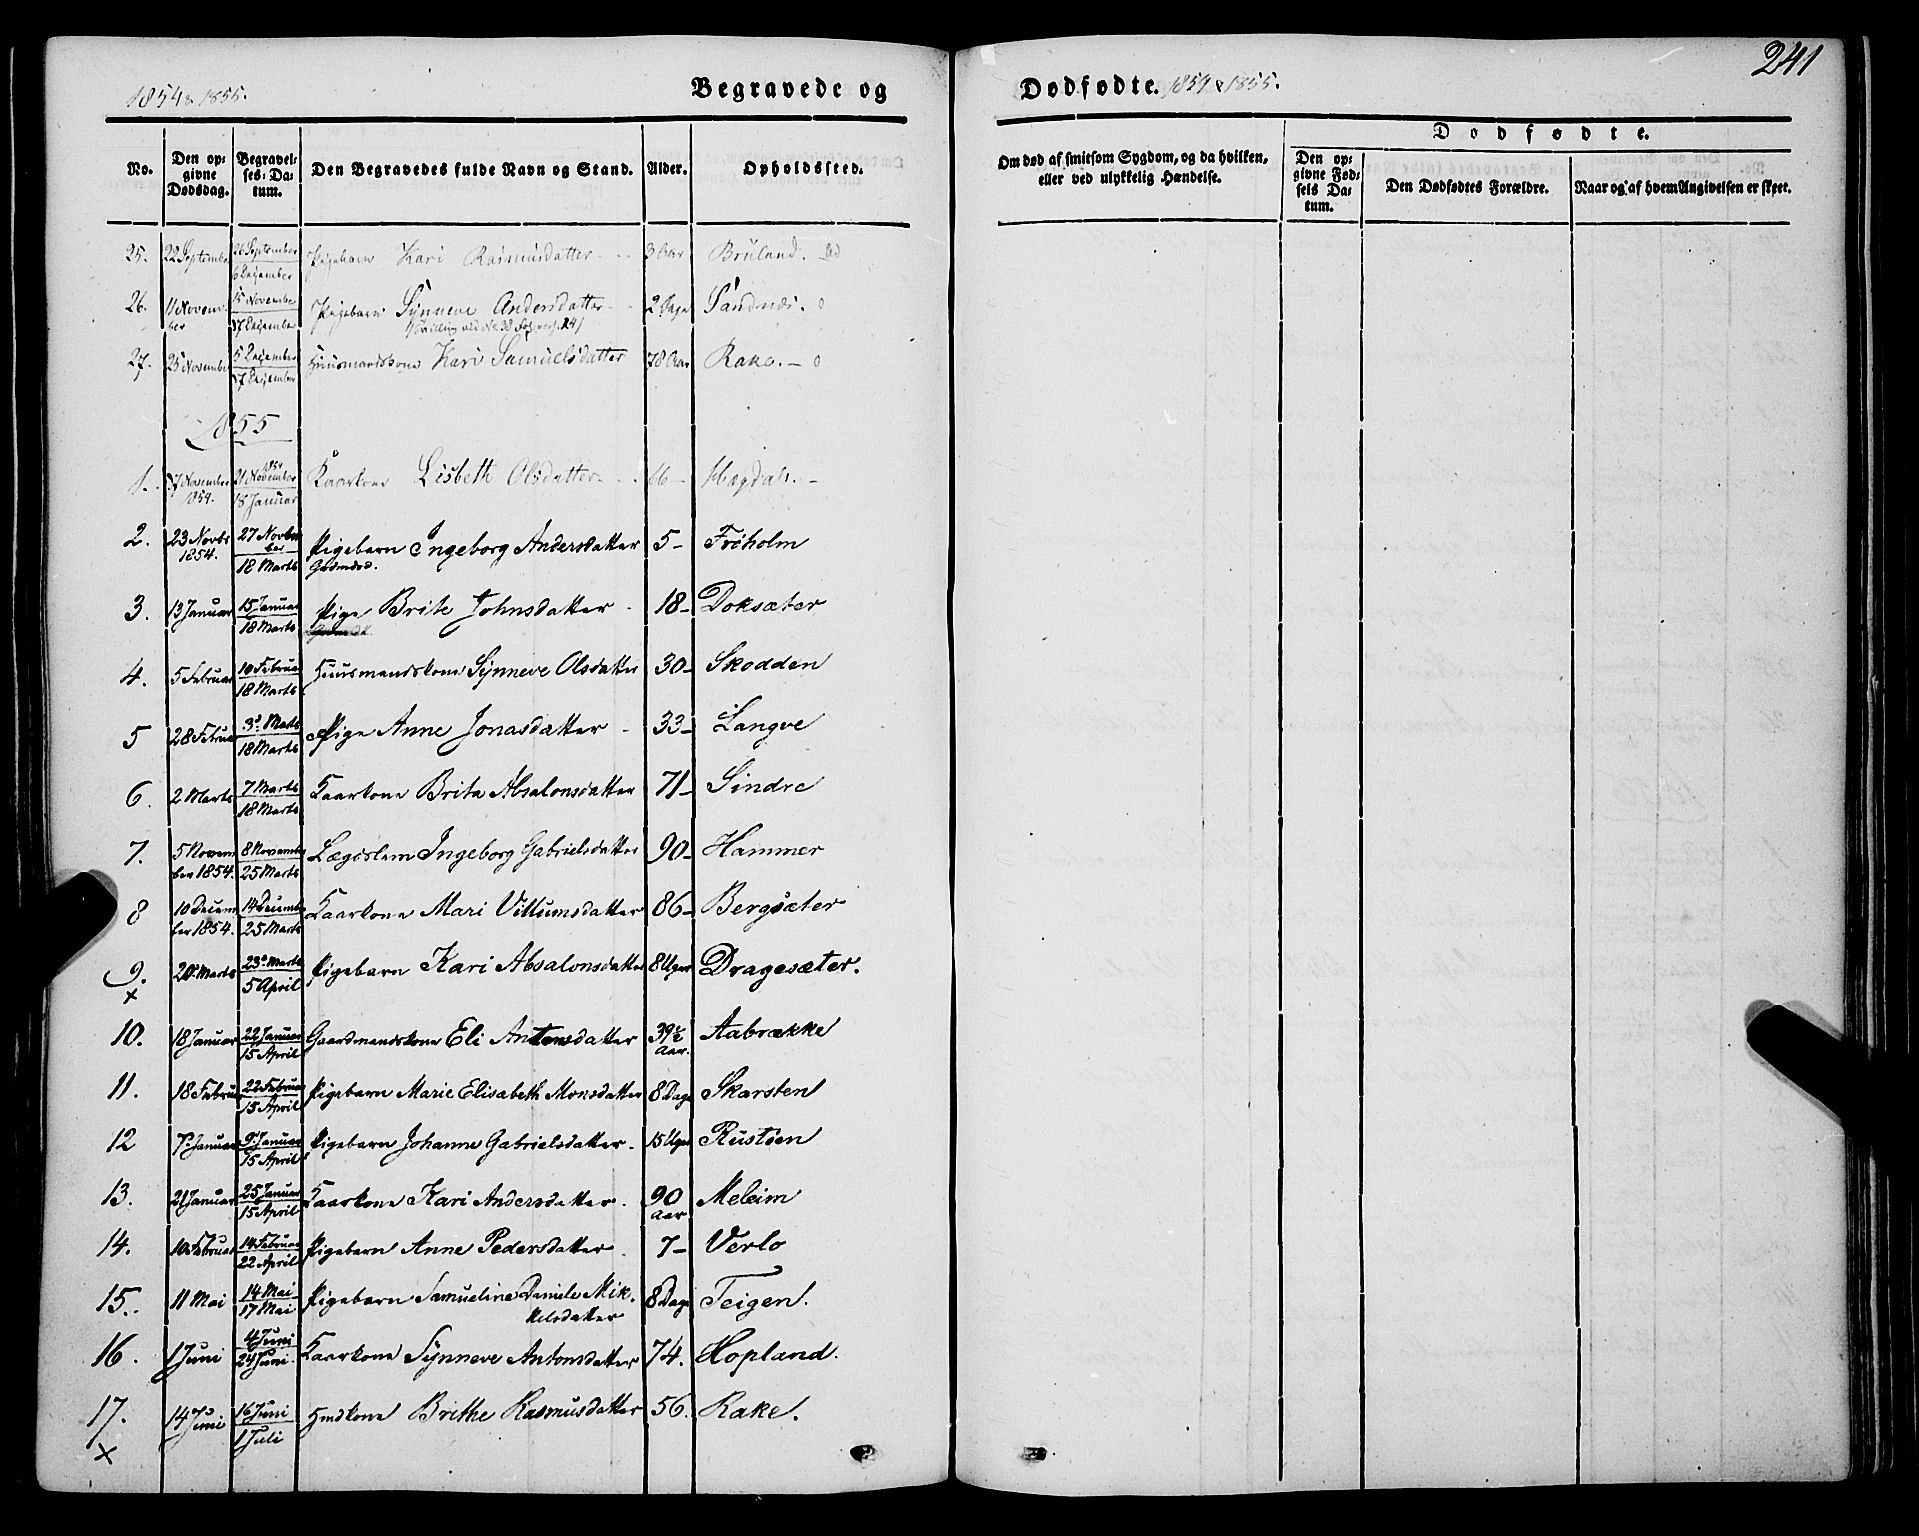 241
1854 & 1855.
Begravede og
Dødfødte. 1854 & 1855.
No.
Den op-
givne
Dødsdag.
Begravel-
ses-Da-
tum.
Den Begravedes fulde Navn og Stand.
Alder.
Opholdssted.
Om død af smitsom Sygdom, og da hvilken,
eller ved ulykkelig Hændelse.
Dødfødte.
Den op-
givne Fød-
sels Da-
tum.
Den Dødfødtes Forældre.
Naar og af hvem Angivelsen er skeet.
25. 22 September 26 September 6 December Pigebarn Kari Rasmusdatter 3 Aar Bruland.
26. 11 November 15 November 17 December Pigebarn Synneve Andersdatter 2 Dage Sandnæs.
Tvilling ved No 38
27. 25 November 5 December 17 December Huusmandskone Kari Samuelsdatter 78 Aar Rake.
1855
1. 17 November 1854. 21 November 1854 18 Januar Kaarkone Lisbeth Olsdatter 66 -
2. 23 Novbr 1854. 27 Novbember 18 Marts Pigebarn Ingeborg Andersdatter 5 - Frøholm
3. 13 Januar 15 Januar 18 Marts Pige Brite Johnsdatter 18 - Doksæter
4. 5 Februar 10 Februar 18 Marts Huusmandskone Synneve Olsdatter 30 - Skodden
5 28 Februar 3d. Marts 18 Marts Pige Anne Jonasdatter 33 - Langve
6. 2 Marts 7 Marts 18 Marts Kaarkone Brita Absalonsdatter 71 - Sindre
7. 5 November 1854. 8 November 25 Marts Lægdslem Ingeborg Gabrielsdatter 90 - Hammer
8 10 December 1854. 14 December 25 Marts Kaarkone Mari Villumsdatter 86 - Bergsæter
9. x 20d Marts 23d Marts 5 April Pigebarn Kari Absalonsdatter 8 Uger Dragesæter.
10. 18 Januar 22 Januar 15 April Gaardmandskone Eli Antonsdatter 39 1/2 Aar. Aabrække
11. 18 Februar 22 Februar 15 April Pigebarn Marie Elisabeth Monsdatter 8 Dage Skarsten
12 7d Januar 9d Januar 15 April Pigebarn Johanne Gabrielsdatter 15 Uger Rustøen
13. 21 Januar 25 Januar 15 April Kaarkone Kari Andersdatter 90 Aar Meleim
14. 10 Februar 14 Februar 22 April Pigebarn Anne Pedersdatter 7 - Verlo
15. 11 Mai 14 Mai 17 Mai Pigebarn Samueline Daniele Mik-
kelsdatter 8 Dage Teigen.
16. 1 Juni 4 Juni 24 Juni Kaarkone Synneve Antonsdatter 74. Hopland.
17. x 14 Juni 16 Juni 1 Juli Hmdkone Brithe Rasmusdatter 56. Rake.